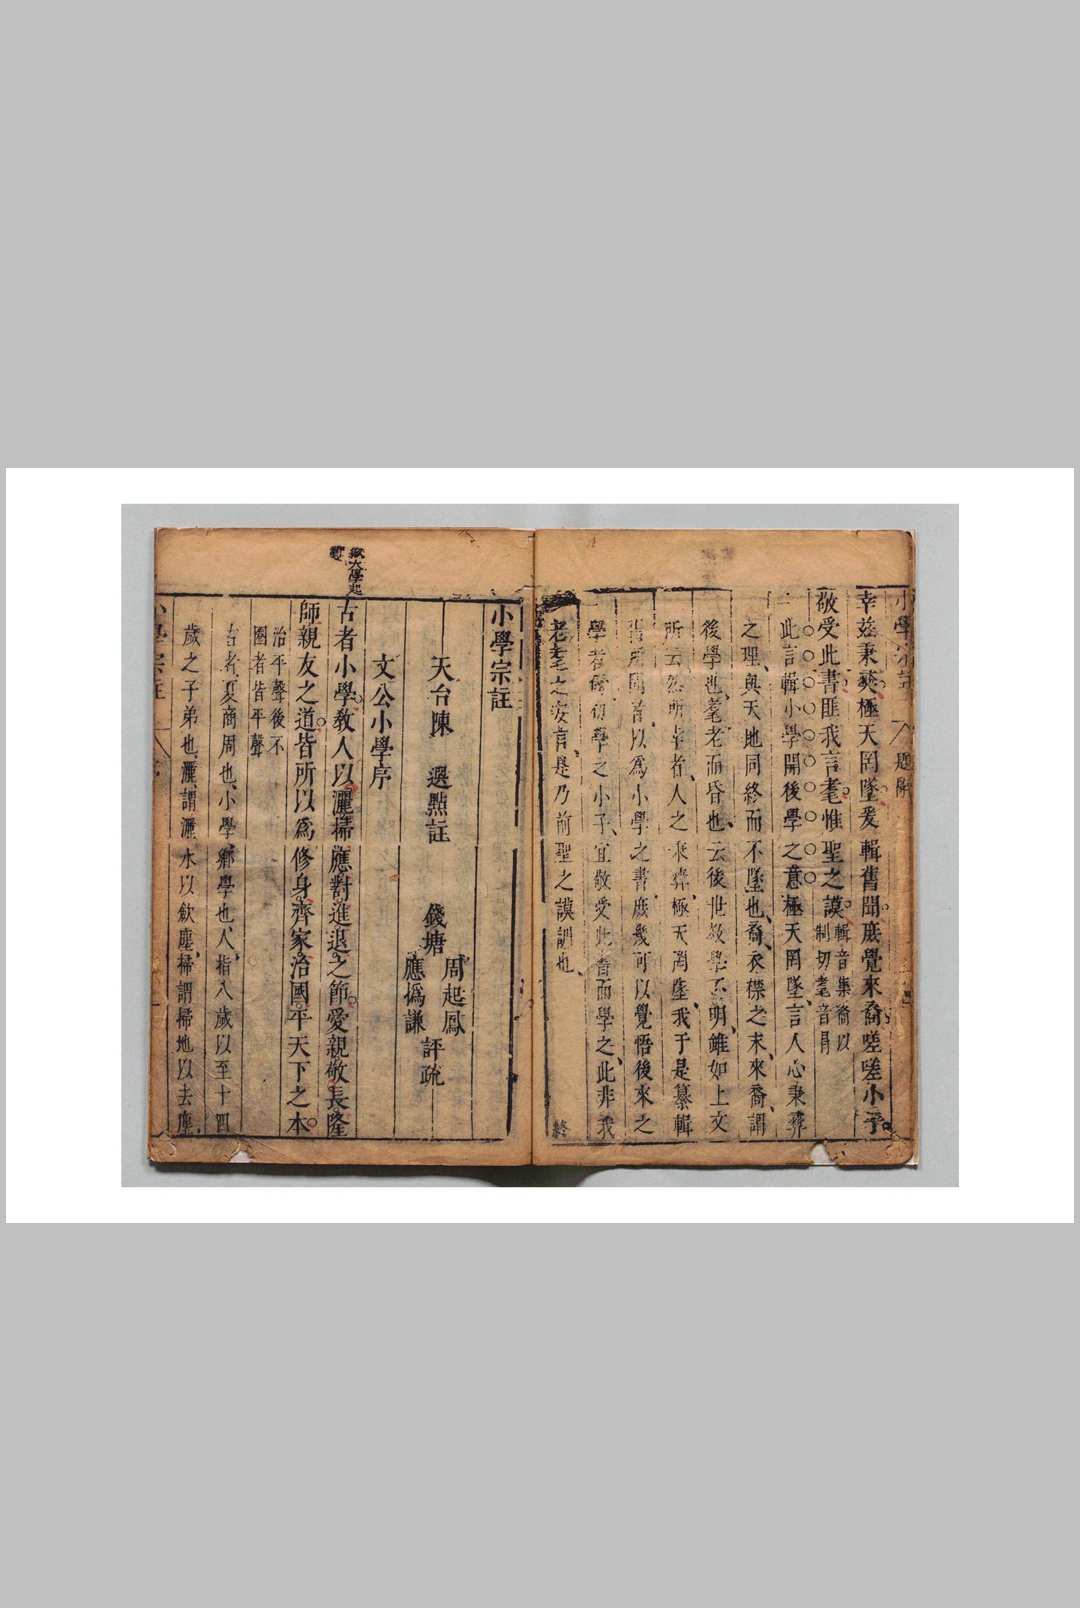 幸茲秉彝極天罔墜爰輯舊聞庶覺來裔嗟嗟小子
敬受此書匪我言耄惟聖之謨輯音集裔以
制切耄音冐
此言輯小學開後學之意極天罔墜言人心秉彝
之理與天地同終而不墜也裔衣裾之末來裔謂
後學也耄老而昏也云後世教學不明雖如上文
所云然所幸者人之秉彝極天罔墜我于是纂輯
舊所聞者以爲小學之書庶幾可以覺悟後來之
學者嗟初學之小子宜敬受此書而學之此非我
老耄之妄言是乃前聖之謨訓也
終
小學宗註
天台陳 選點註
錢塘
周起鳳
應撝謙
評疏
文公小學序
古者小學敎人以灑掃應對進退之節愛親敬長隆
師親友之道皆所以爲修身齊家治國平天下之本
治平聲後不
圈者皆平聲
古者夏商周也小學鄉學也人指八歲以至十四
歲之子弟也灑謂灑水以飲塵掃謂掃地以去塵
小學宗註